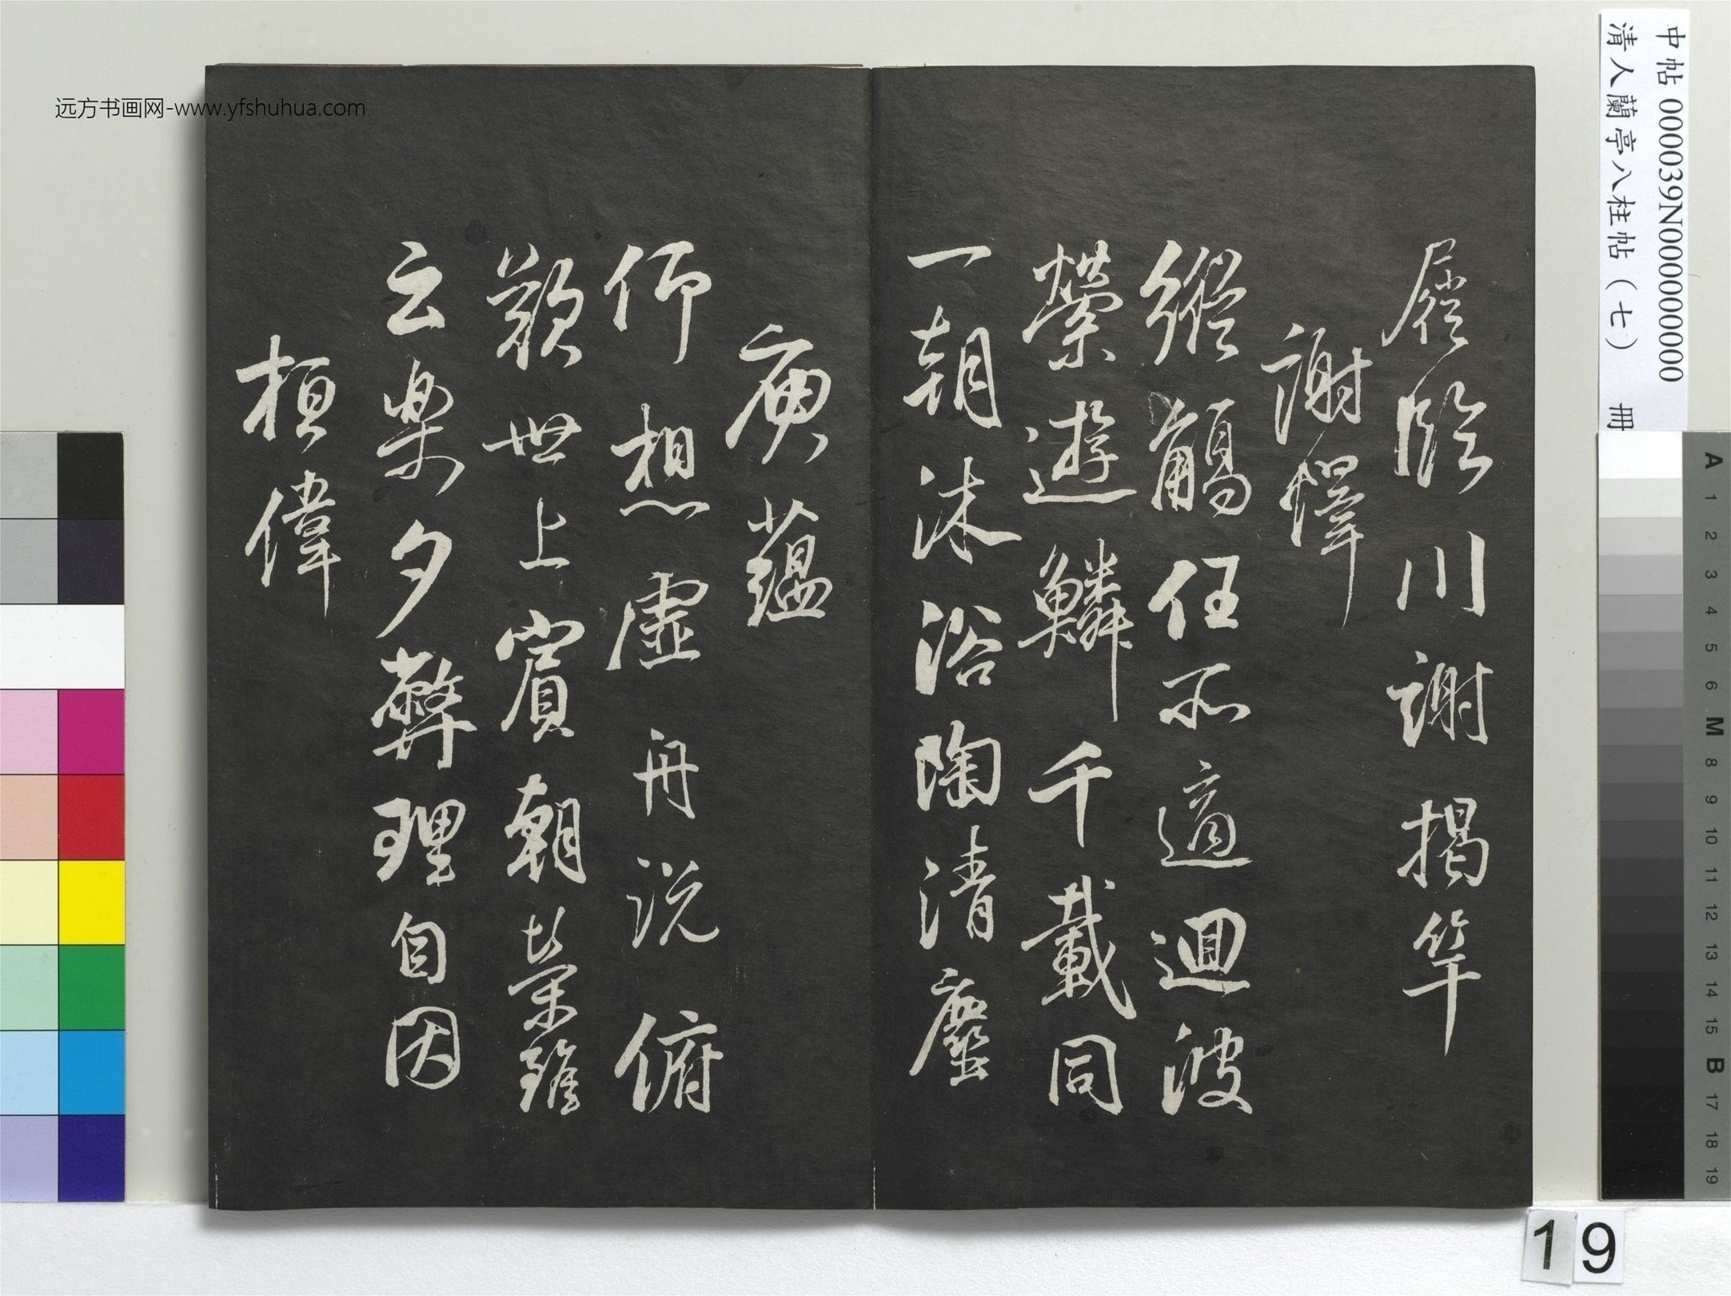 远方书画网-www.yfshuhua.com
中帖 000039N000000000
清人蘭亭八柱帖（七） 冊
屣臨川謝揭竿
謝繹
縱觴任所適迴波
縈遊鱗千載同
一朝沐浴陶清塵
庾蘊
仰想虛舟説俯
歎世上賓朝榮雖
云樂夕弊理自因
桓偉
A
1
2
3
4
5
6
M
8
9
10
11
12
13
14
15
B
17
18
19
19